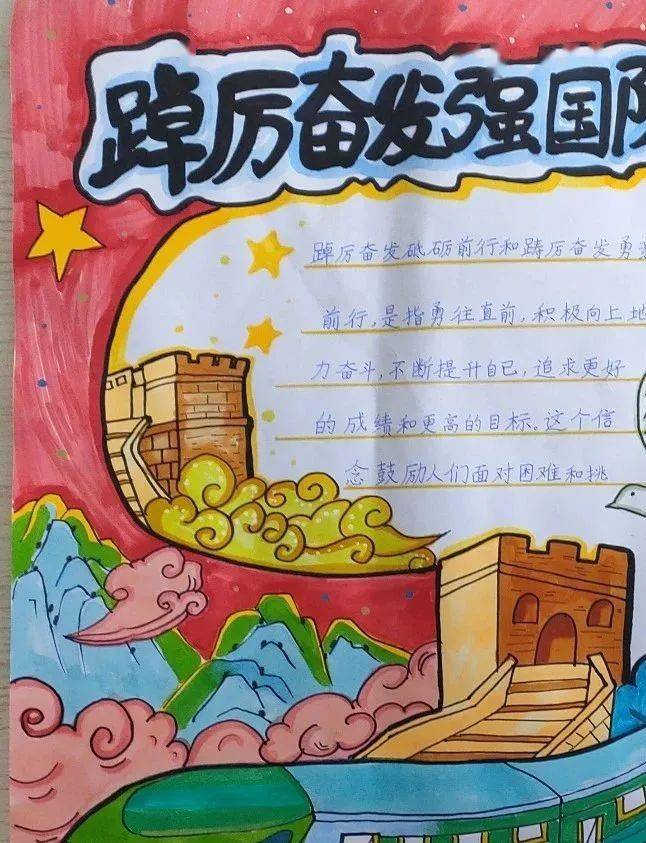 踔厉奋发强国
踔厉奋发砥砺前行和踌厉奋发勇
前行,是指勇往直前,积极向上地
力奋斗,不断提升自己,追求更好
的成绩和更高的目标。这个信
念鼓励人们面对困难和挑